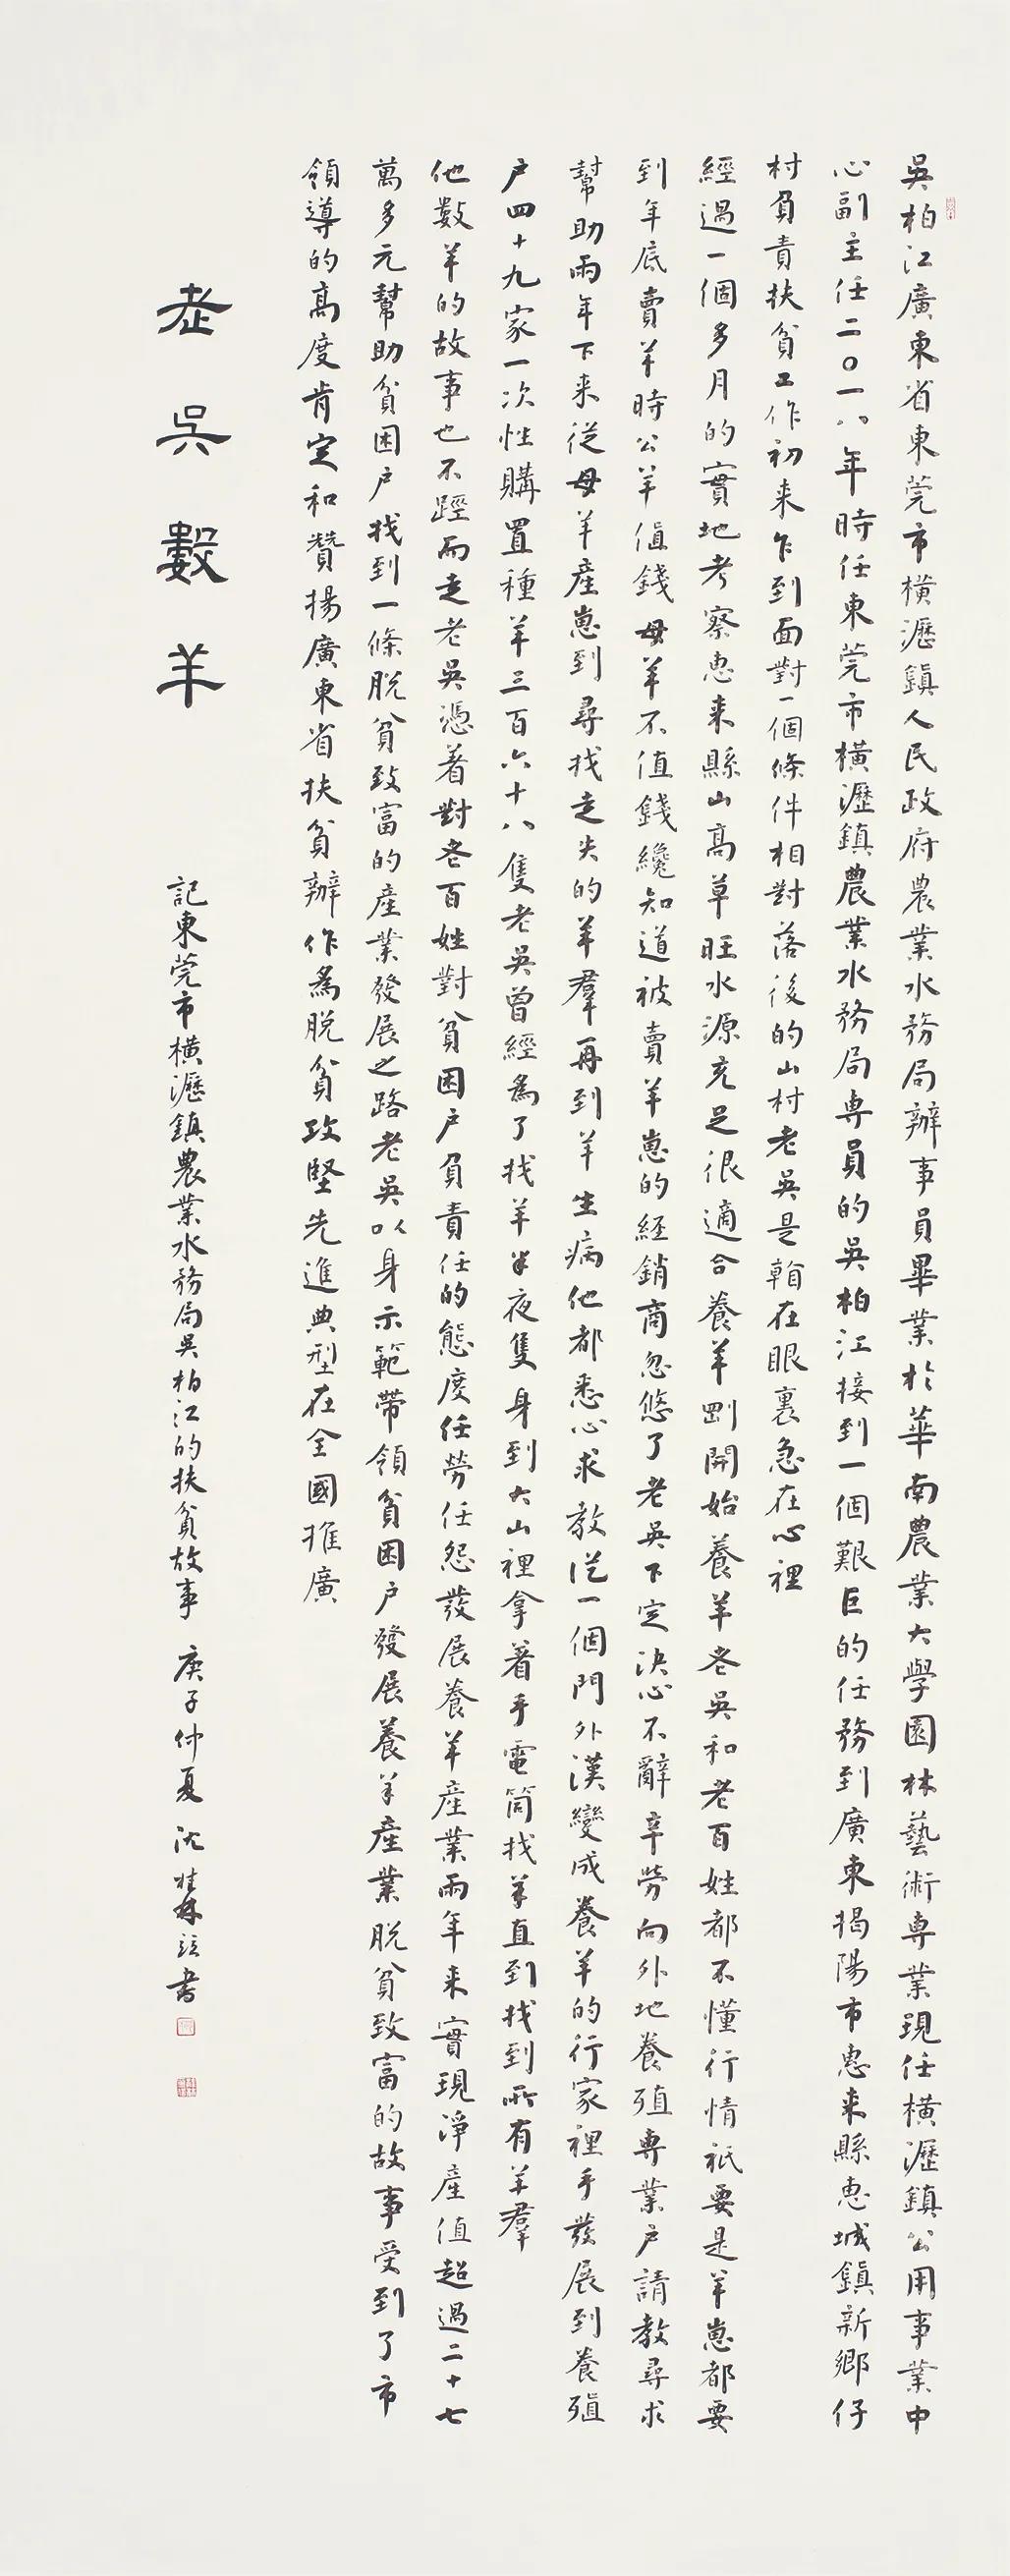 吳柏江廣東省東莞市橫瀝鎮人民政府農業水務局辦事員畢業於華南農業大學園林藝術專業現任橫瀝鎮公用事業中
心副主任二〇一八年時任東莞市橫瀝鎮農業水務局專員的吳柏江接到一個艱巨的任務到廣東揭陽市惠来縣惠城鎮新鄉仔
村負責扶貧工作初来乍到面對一個條件相對落後的山村老吳是看在眼裏急在心裡
經過一個多月的實地考察惠来縣山高草旺水源充足很適合養羊剛開始養羊老吳和老百姓都不懂行情衹要是羊崽都要
到年底賣羊時公羊值錢母羊不值錢纔知道被賣羊崽的經銷商忽悠了老吳下定決心不辭辛勞向外地養殖專業户請教尋求
幫助兩年下来從母羊産崽到尋找走失的羊羣再到羊生病他都悉心求教從一個門外漢變成養羊的行家裡手發展到養殖
户四十九家一次性購置種羊三百六十八隻老吳曾經為了找羊半夜隻身到大山裡拿着手電筒找羊直到找到所有羊羣
他數羊的故事也不踁而走老吳憑着對老百姓對貧困户負責任的態度任勞任怨發展養羊産業兩年来實現淨産值超過二十七
萬多元幫助貧困户找到一條脱貧致富的産業發展之路老吳以身示範帶領貧困户發展養羊産業脱貧致富的故事受到了市
領導的高度肯定和贊揚廣東省扶貧辦作為脱貧攻堅先進典型在全國推廣
老吳數羊
記東莞市橫瀝鎮農業水務局吳柏江的扶貧故事 庚子仲夏 沈桂林 書